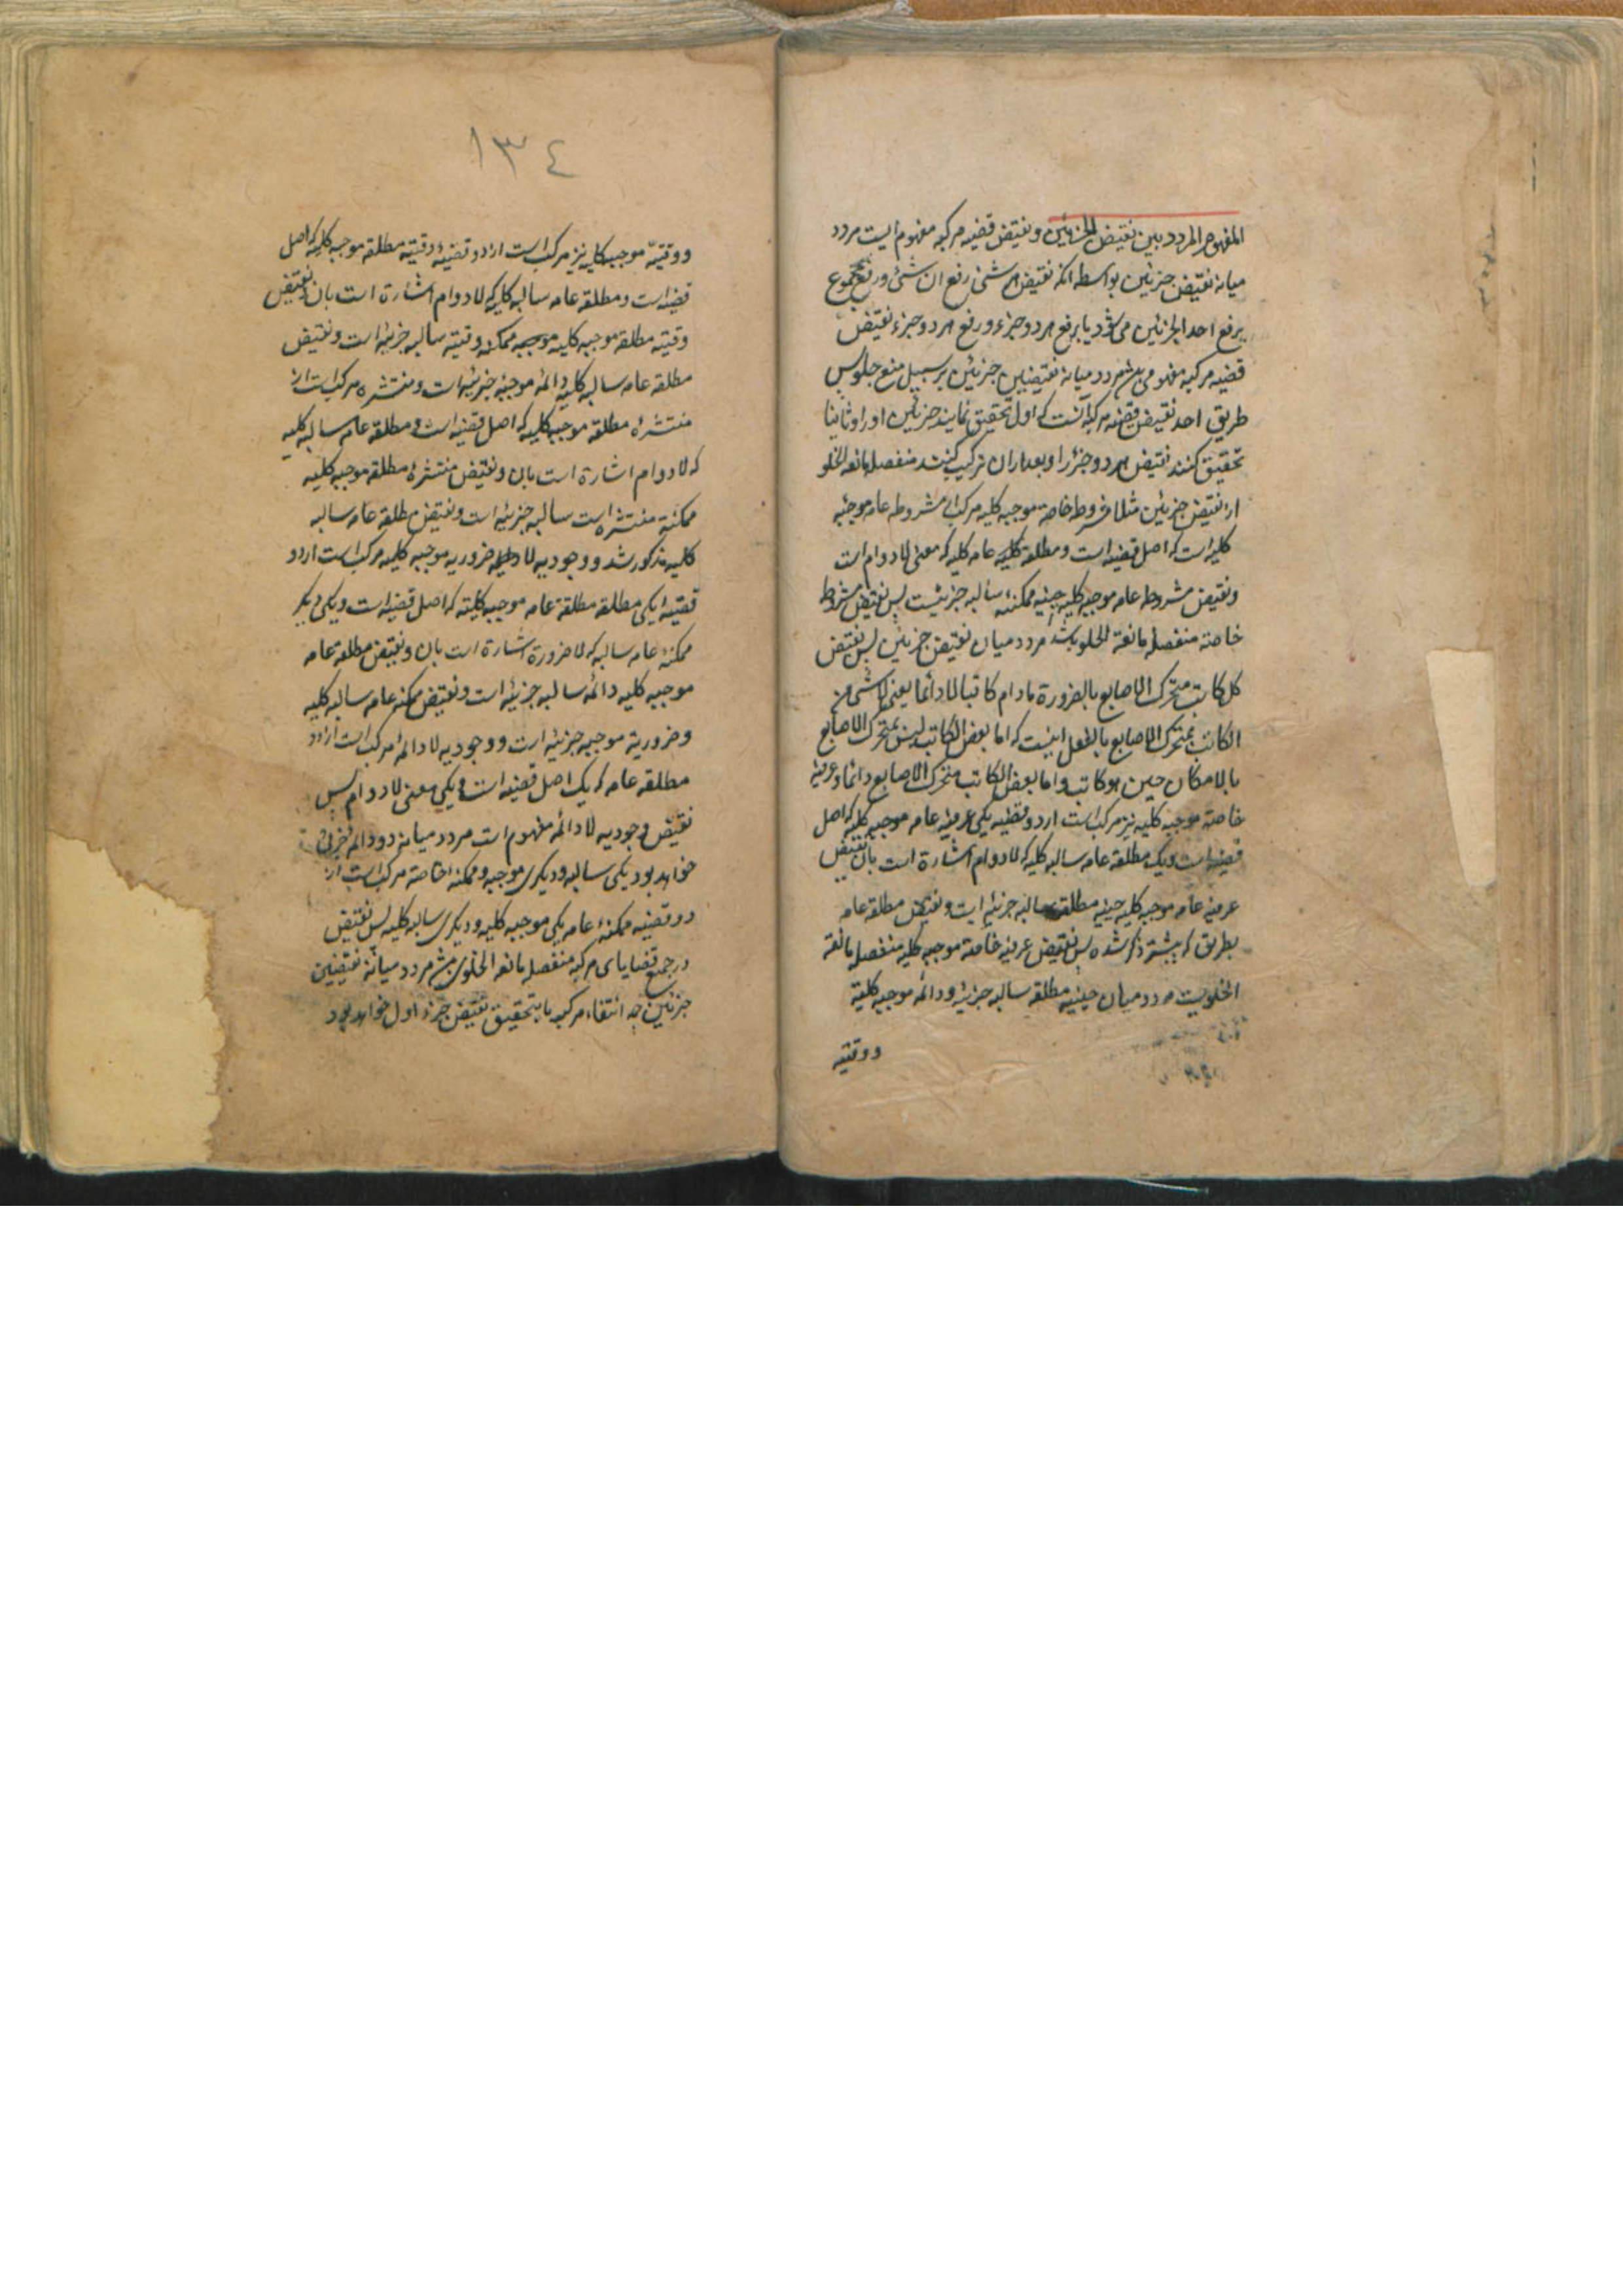 المفهوم المردد بین نقیض الجزئین و نقیض قضیه مرکبه مفهوم ایست مردد
میانه نقیض جزئین بواسطه انکه نقیض هر شئ رفع ان شئ و رفع مجموع
برفع احد الجزئین می شود یا برفع هر دو جزء و رفع هر دو جزء نقیض
قضیه مرکبه مفهومی باشد مردد میانه نقیضین جزئین بر سبیل منع خلو پس
طریق اخذ نقیض قضیه مرکبه آنست که اول تحقیق نمایند جزئین او را و ثانیا
تحقیق کنند نقیض هر دو جزء را و بعد از ان ترکیب کنند منفصله مانعه الخلو
از نقیض جزئین مثلا مشروطه خاصه موجبه کلیه مرکب از مشروطه عامه موجبه
کلیه است که اصل قضیه است و مطلقه کلیه عامه کلیه که معنی لا دوام است
و نقیض مشروطه عامه موجبه کلیه حینیه ممکنه سالبه جزئیست پس نقیض مشروطه
خاصه منفصله مانعة الخلو باشد مردد میان نقیض جزئین پس نقیض
کل کاتب متحرک الاصابع بالضرورة مادام کاتبا لا دائما یعنی لا شئ من
الکاتب بمتحرک الاصابع بالفعل اینست که اما بعض الکاتب لیس بمتحرک الاصابع
بالامکان حین هو کاتب و اما بعض الکاتب متحرک الاصابع دائما و عرفیه
خاصه موجبه کلیه نیز مرکب است از دو قضیه یکی عرفیه عامه موجبه کلیه که اصل
قضیه است و یک مطلقه عامه سالبه کلیه که لا دوام اشارة است بان نقیض
عرفیه عامه موجبه کلیه حینیه مطلقه سالبه جزئیه است و نقیض مطلقه عامه
بطریق که پیشتر ذکر شده پس نقیض عرفیه خاصه موجبه کلیه منفصله مانعة
الخلویست مردد میان حینیه مطلقه سالبه جزئیه و دائمه موجبه کلیة
و وقتیه
١٣٤
و وقتیه موجبه کلیه نیز مرکب است از دو قضیهٔ وقتیه مطلقه موجبه کلیه که اصل
قضیه است و مطلقه عامه سالبه کلیه که لا دوام اشارة است بان و نقیض
وقتیه مطلقه موجبه کلیه موجبه ممکنه وقتیه سالبه جزئیه است و نقیض
مطلقه عامه سالبه کلیه دائمه موجبه جزئیه است و منتشره مرکب است از
منتشرهٔ مطلقه موجبه کلیه که اصل قضیه است و مطلقه عامه سالبه کلیه
که لا دوام اشارة است بان و نقیض منتشرهٔ مطلقه موجبه کلیه
ممکنه منتشره است سالبه جزئیه است و نقیض مطلقه عامه سالبه
کلیه مذکور شد و وجودیه لا ضروریه موجبه کلیه مرکب است از دو
قضیه یکی مطلقه مطلقة عامه موجبه کلیته که اصل قضیه است و یکی دیگر
ممکنهٔ عامه سالبه که لا ضرورة اشارة است بان و نقیض مطلقه عامه
موجبه کلیه دائمه سالبه جزئیه است و نقیض ممکنه عامه سالبه کلیه
و ضروریة موجبه جزئیه است و وجودیه لا دائمه مرکب است از دو
مطلقه عامه که یک اصل قضیه است و یکی معنی لا دوام پس
نقیض وجودیه لا دائمه مفهوم است مردد میانه دو دائمه جزئیه
خواهد بود یکی سالبه و دیگری موجبه و ممکنه خاصة مرکب است از
دو قضیه ممکنهٔ عامه یکی موجبه کلیه و دیگری سالبه کلیه پس نقیض
در جمیع قضایای مرکبه منفصله مانعه الخلوی باشد مردد میانه نقیضین
جزئین چه انتفاء مرکبه یا بتحقیق نقیض جزء اول خواهد بود